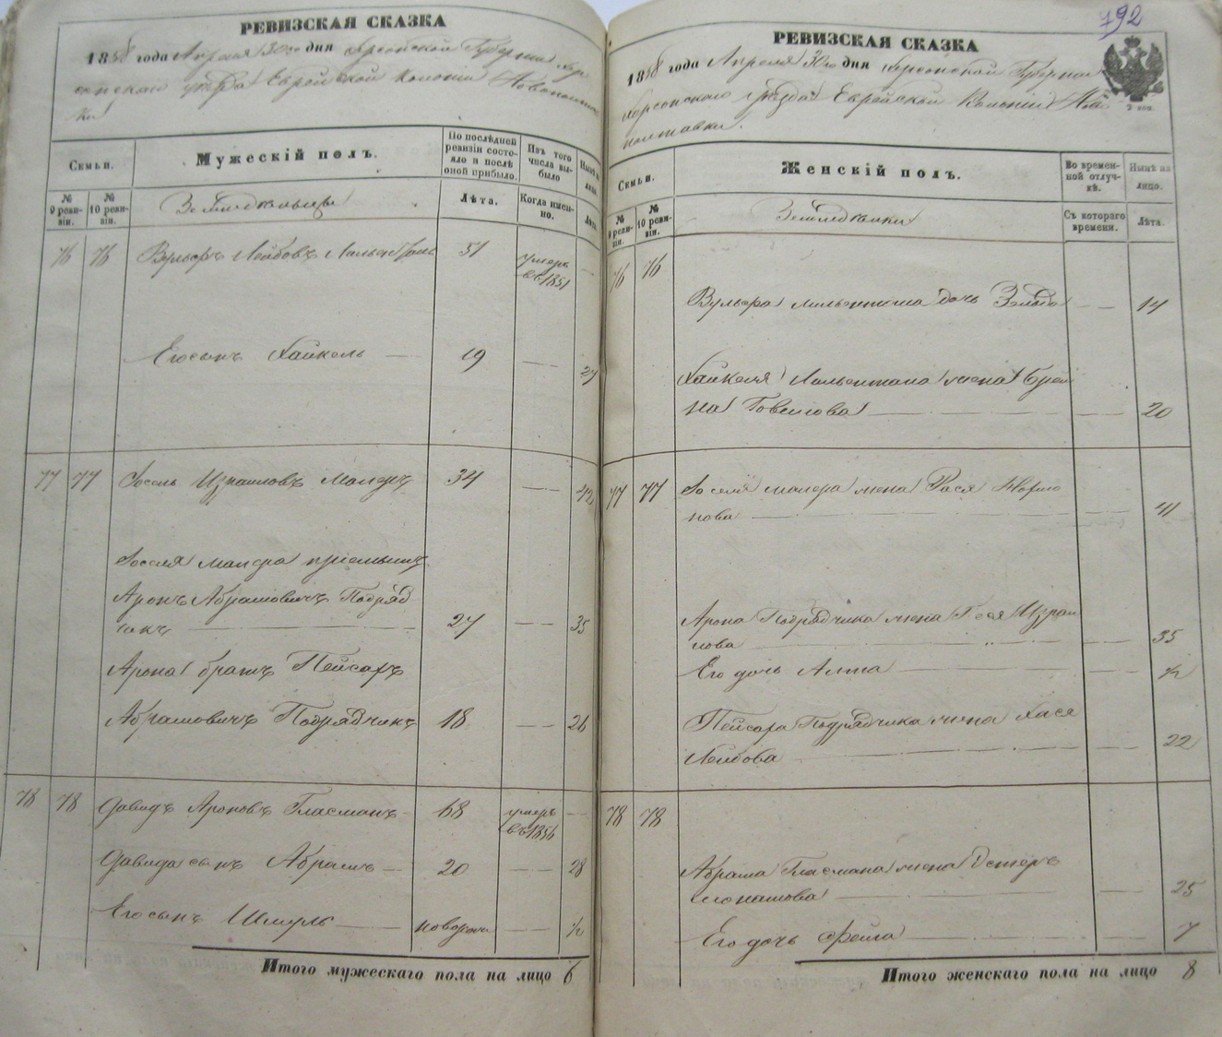 РЕВИЗСКАЯ СКАЗКА
1858 года Апреля 30го дня Херсонской Губернии Хер
сонскаго уезда Еврейской Колонии Новополтав
ки
Семьи.
Мужескій полъ.
По послѣдней ревизіи состояло и послѣ оной прибыло.
Изъ того числа выбыло
№ 9 ревизіи.
№ 10 ревизіи.
Земледельцы
Лѣта.
Когда именно.
Лѣта
76 76 Вульфъ Лейбовъ 51 умеръ въ 1851 —
Его сынъ Хайкель — 19 — 27
77 77 Иосель Израиловъ 34 — 42
Иоселя приемышъ
Аронъ Абрамовичъ Подряд
чикъ — 27 — 35
Арона братъ Пейсахъ
Абрамовичъ Подрядчикъ 18 — 26
78 78 Давидъ Ароновъ Гласманъ 68 умеръ въ 1856 —
Давида сынъ Абрамъ — 20 — 28
Его сынъ Шмуль — новорож — ½
Итого мужескаго пола на лицо 6
792
РЕВИЗСКАЯ СКАЗКА
1858 года Апреля 30го дня Херсонской Губернии
Херсонскаго уезда Еврейской Колонии Ново
полтавки.
Семьи.
Женскій полъ.
Во временной отлучкѣ.
Нынѣ на лицо.
№ 9 ревизіи.
№ 10 ревизіи.
Земледелки
Съ котораго времени.
Лѣта.
76 76
Вульфа дочь Зельда — 14
Хайкеля жена Брей
на — 20
77 77 Иоселя жена Рася
нова — 41
Арона Подрядчика жена Израи
лова — 35
Его дочь — ½
Пейсаха Подрядчика жена Хася
Лейбова — 22
78 78
Абрама Гласмана жена Эстеръ
— 25
Его дочь Фейга — 7
Итого женскаго пола на лицо 8